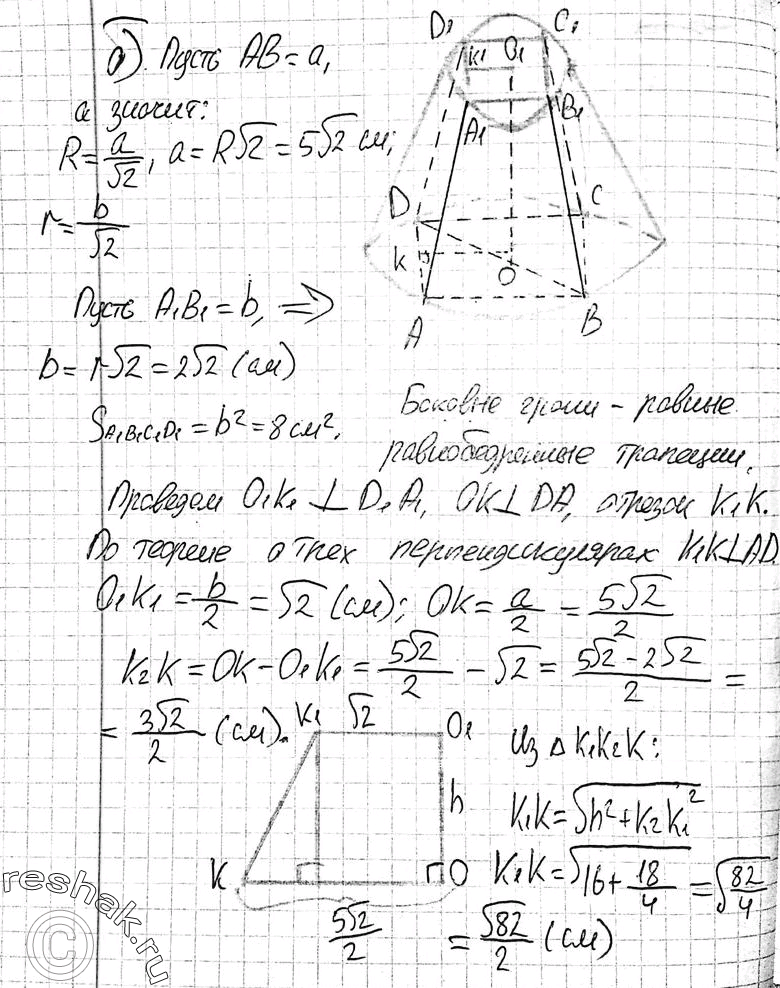 б). Пусть AB = a,
а значит:
R = a/√2, a = R√2 = 5√2 см;
r = b/√2
Пусть A₁B₁ = b, ⟹
b = r√2 = 2√2 (см)
S_A₁B₁C₁D₁ = b² = 8 см².
D₁ C₁
K₁ O₁
A₁ B₁
D C
K O
A B
Боковые грани – равные
равнобедренные трапеции.
Проведем O₁K₁ ⊥ D₁A₁, OK ⊥ DA, отрезок K₁K.
По теореме о трех перпендикулярах K₁K ⊥ AD.
O₁K₁ = b/2 = √2 (см); OK = a/2 = 5√2/2
K₂K = OK – O₁K₁ = 5√2/2 – √2 = (5√2 – 2√2)/2 =
= 3√2/2 (см).
K₁ √2 O₁
h
K O
5√2/2
Из △K₁K₂K:
K₁K = √(h² + K₂K₁²)
K₁K = √(16 + 18/4) = √(82/4)
= √82/2 (см)
reshak.ru
©